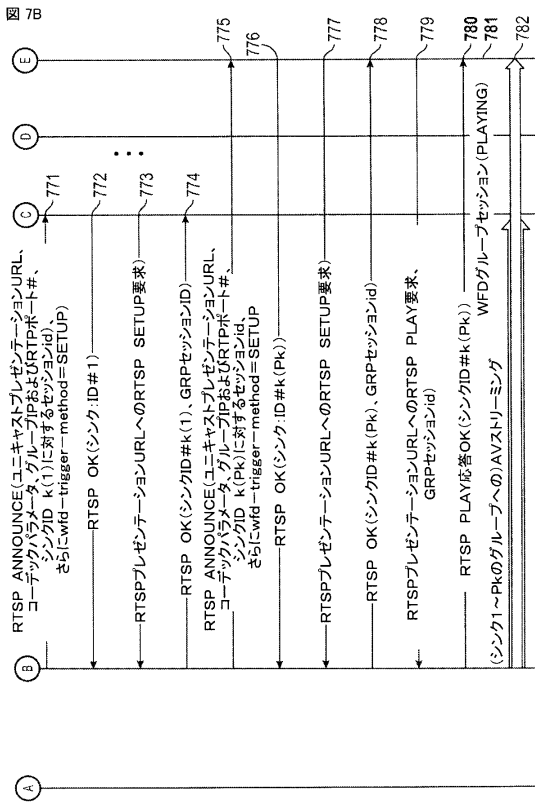 図 7B
A
B
C
D
E
RTSP ANNOUNCE(ユニキャストプレゼンテーションURL、
コーデックパラメータ、グループIPおよびRTPポート#、
シンクID k(1)に対するセッションid)、
さらにwfd-trigger-method=SETUP)
771
RTSP OK(シンク:ID#1)
772
RTSPプレゼンテーションURLへのRTSP SETUP要求)
773
RTSP OK(シンクID#k(1)、GRPセッションID)
774
RTSP ANNOUNCE(ユニキャストプレゼンテーションURL、
コーデックパラメータ、グループIPおよびRTPポート#、
シンクID k(Pk)に対するセッションid、
さらにwfd-trigger-method=SETUP
775
RTSP OK(シンク:ID#k(Pk))
776
RTSPプレゼンテーションURLへのRTSP SETUP要求)
777
RTSP OK(シンクID#k(Pk)、GRPセッションid)
778
RTSPプレゼンテーションURLへのRTSP PLAY要求、
GRPセッションid)
779
RTSP PLAY応答OK(シンクID#k(Pk))
780
WFDグループセッション(PLAYING)
781
(シンク1~Pkのグループへの)AVストリーミング
782